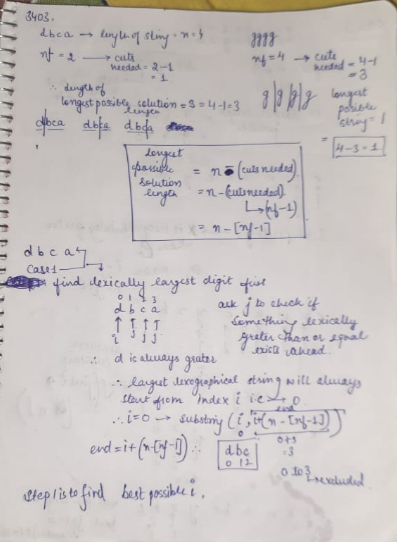 3403.
dbca → length of string = n = 4
nf = 2 → cuts needed = 2-1
= 1
∴ length of
longest posible solution = 3 = 4-1 = 3
length
dbca dbca dbca
gggg
nf = 4 → cuts needed = 4-1
= 3
g|g|g|g longest
posible
string = 1
= 4-3 = 1
longest
possible
solution
length
= n - (cuts needed)
= n - (cuts needed)
↳ (nf-1)
= n - [nf-1]
d b c a
Case 1
find lexically largest digit first
0 1 2 3
d b c a
↑ ↑ ↑ ↑
i j j j
ask j to check if
something lexically
greater than or equal
exist ahead.
∴ d is always grater
∴ largest lexographical string will always
start from index i i.e → 0.
∴ i=0 → substring (i, i+(n-[nf-1]))
end
0+3
= 3
end = i+(n-[nf-1])
dbc
0 1 2
0 to 3
↳ excluded
Step 1 is to find best possible i.